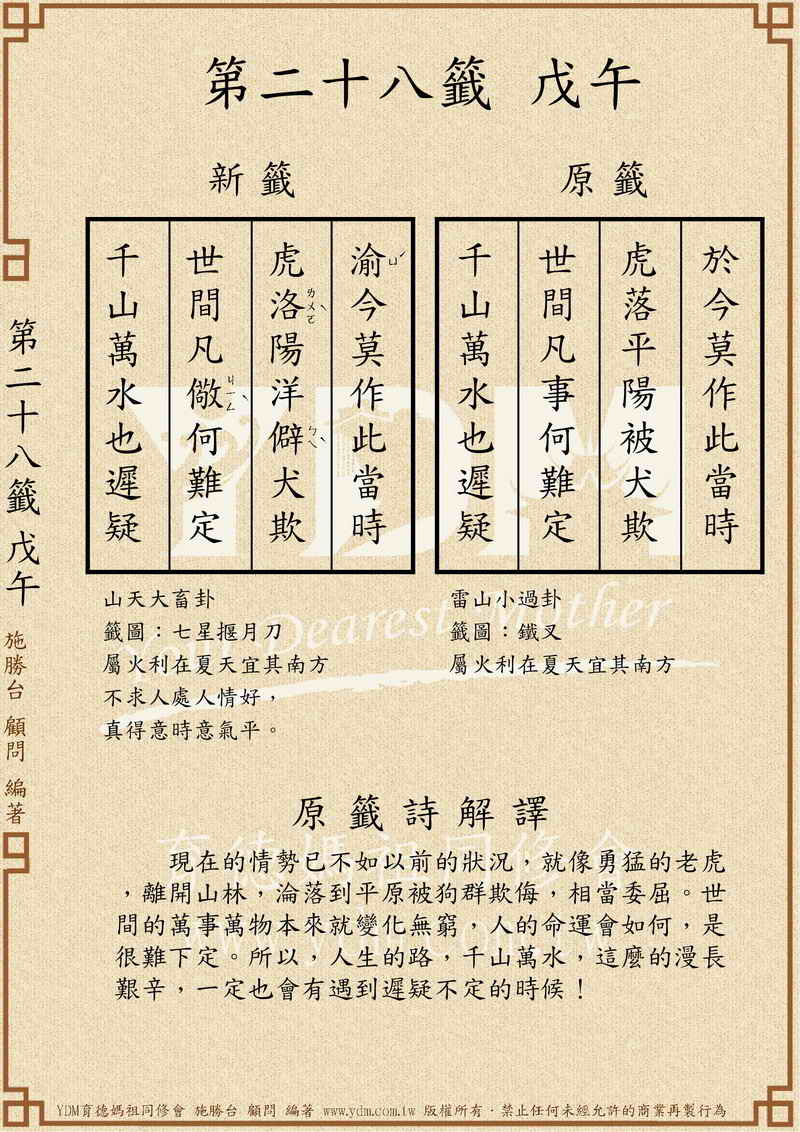 第二十八籤 戊午
原籤
於今莫作此當時
虎落平陽被犬欺
世間凡事何難定
千山萬水也遲疑
雷山小過卦
籤圖：鐵叉
屬火利在夏天宜其南方
新籤
渝ㄩˊ今莫作此當時
虎洛ㄌㄨㄛˋ陽洋僻ㄆㄟˋ犬欺
世間凡儆ㄐㄧㄥˋ何難定
千山萬水也遲疑
山天大畜卦
籤圖：七星揠月刀
屬火利在夏天宜其南方
不求人處人情好，
真得意時意氣平。
原籤詩解譯
現在的情勢已不如以前的狀況，就像勇猛的老虎
，離開山林，淪落到平原被狗群欺侮，相當委屈。世
間的萬事萬物本來就變化無窮，人的命運會如何，是
很難下定。所以，人生的路，千山萬水，這麼的漫長
艱辛，一定也會有遇到遲疑不定的時候！
第二十八籤 戊午
施勝台 顧問 編著
YDM
Your Dearest Mother
育德媽祖同修會
YDM育德媽祖同修會 施勝台 顧問 編著 www.ydm.com.tw 版權所有．禁止任何未經允許的商業再製行為